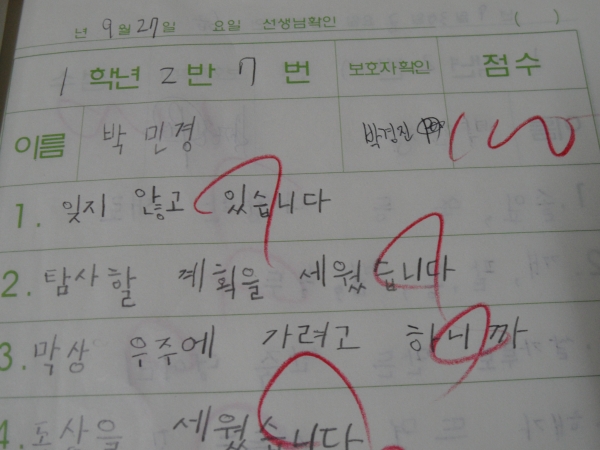 년 9월 27일 요일 선생님확인 ( )
1 학년 2 반 7 번 보호자확인 점수
이름 박민경 박경진 100
1. 잊지 않고 있습니다
2. 탐사할 계획을 세웠습니다
3. 막상 우주에 가려고 하니까
4. 동상을 세웠습니다